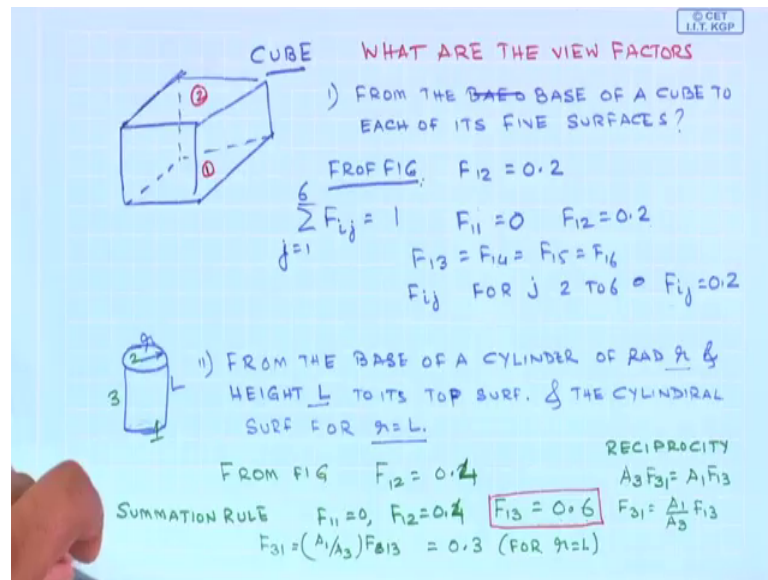 © CET
I.I.T. KGP
CUBE WHAT ARE THE VIEW FACTORS
②
①
i) FROM THE BAED BASE OF A CUBE TO
EACH OF ITS FIVE SURFACES?
FROF FIG. F12 = 0.2
6
∑ Fij = 1 Fii = 0 F12 = 0.2
j=1
F13 = F14 = F15 = F16
Fij FOR j 2 TO 6 Fij = 0.2
r
2
L
3
1
ii) FROM THE BASE OF A CYLINDER OF RAD r &
HEIGHT L TO ITS TOP SURF. & THE CYLINDIRAL
SURF FOR r=L.
RECIPROCITY
FROM FIG F12 = 0.4 A3 F31 = A1 F13
SUMMATION RULE F11 = 0, F12 = 0.4 F13 = 0.6 F31 = A1/A3 F13
F31 = (A1/A3) F13 = 0.3 (FOR r=L)